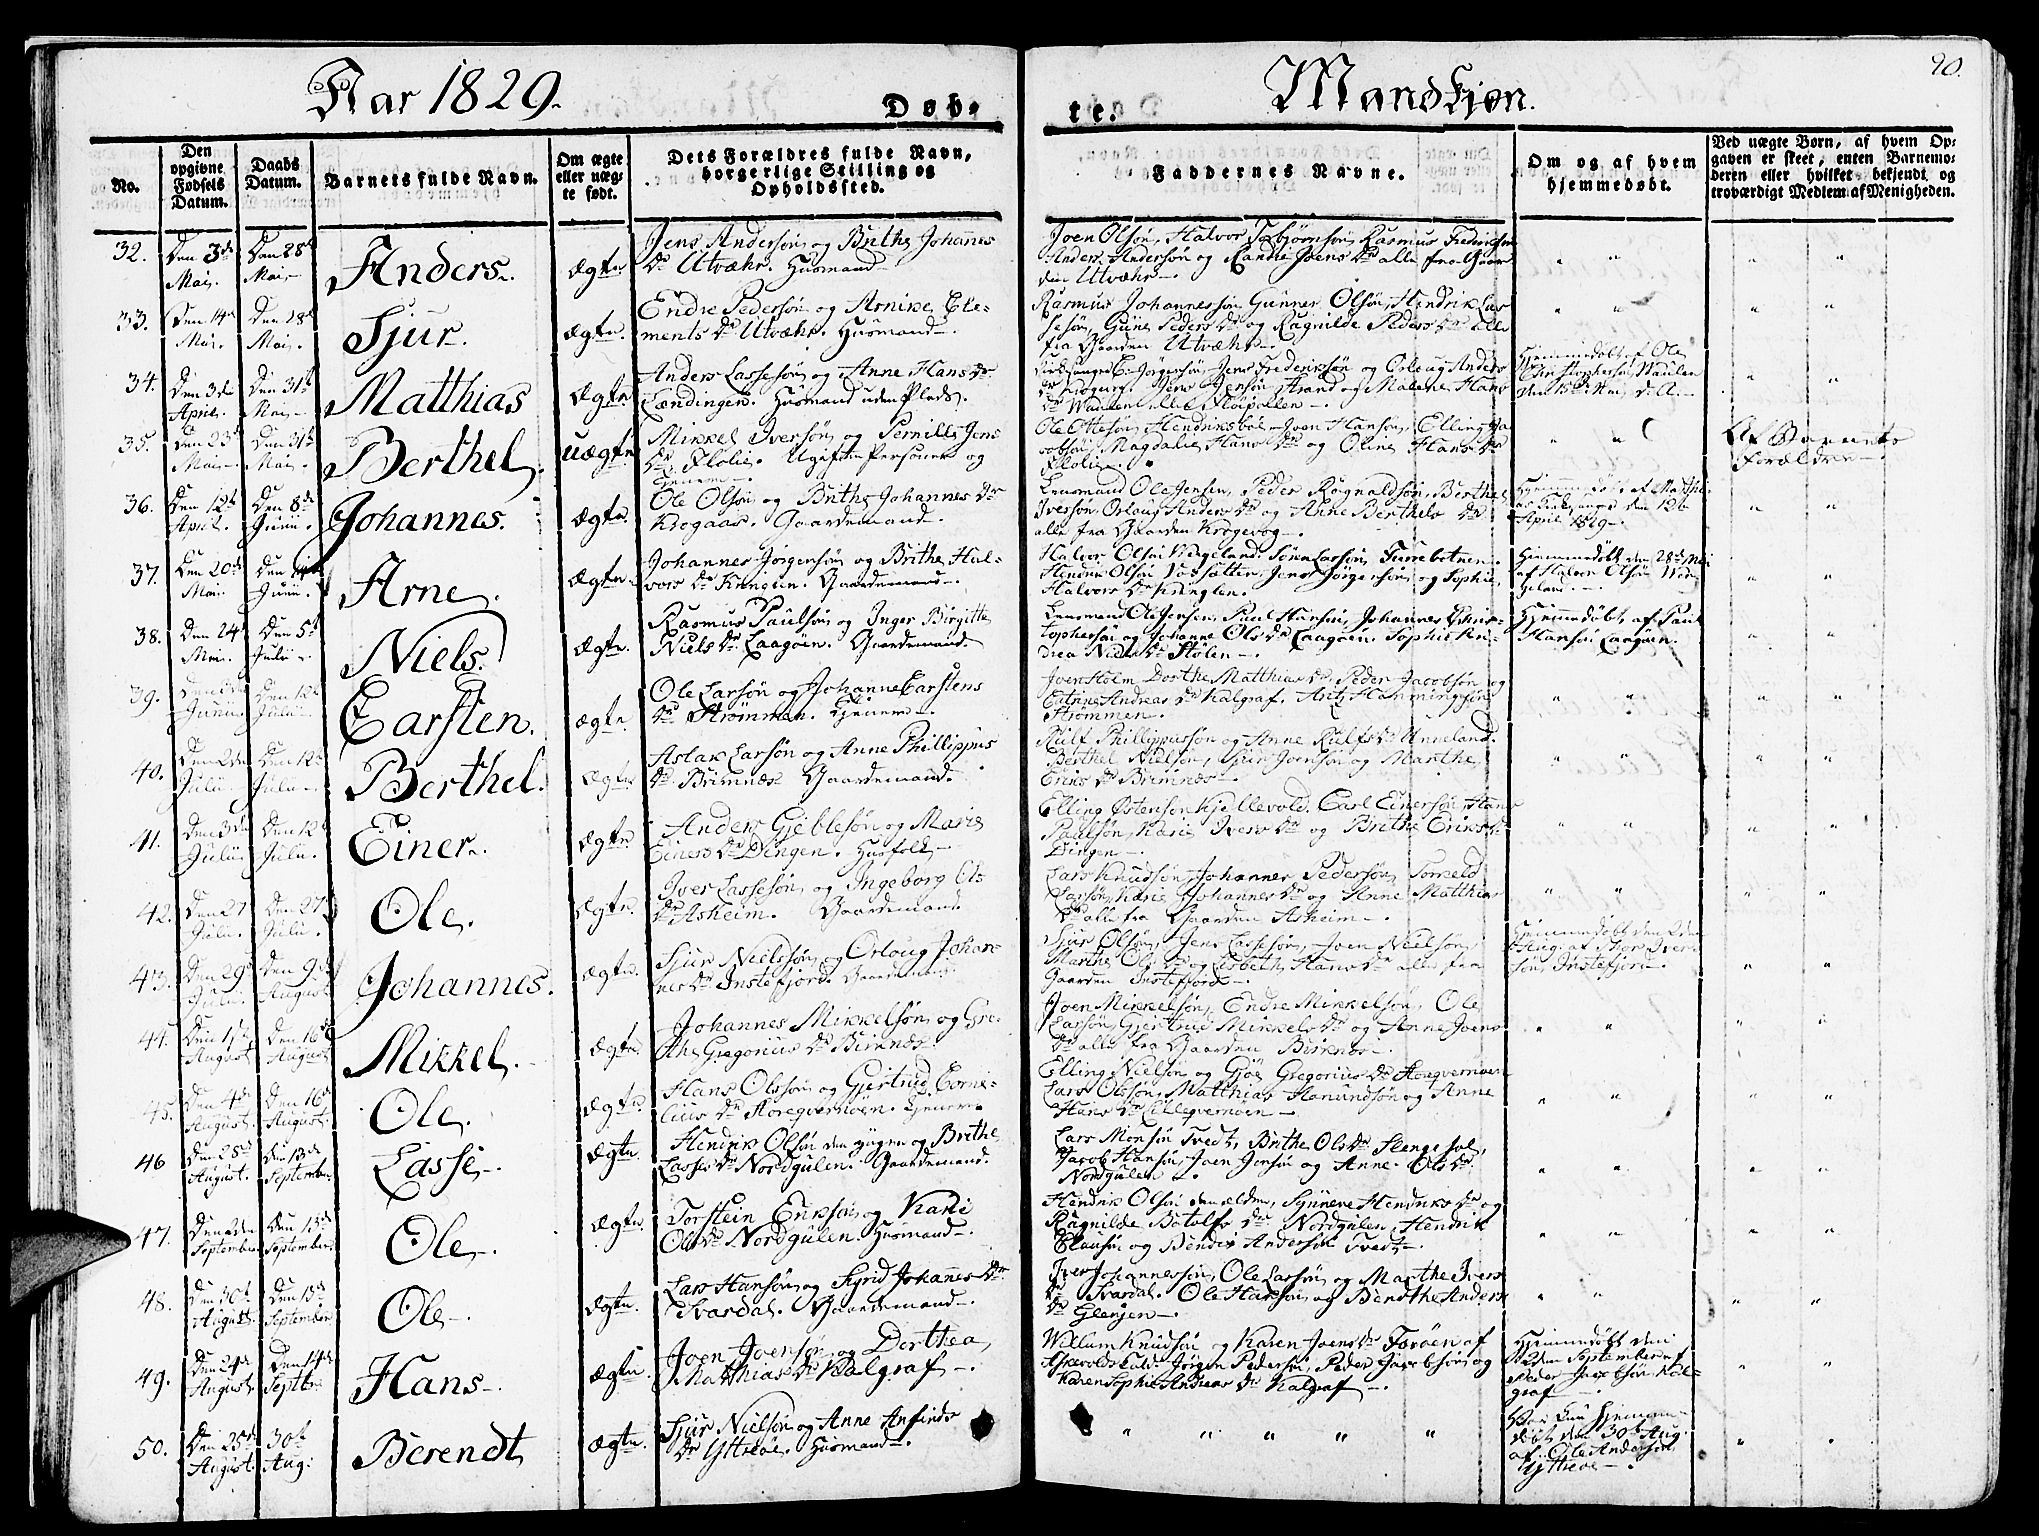 Aar 1829.
Døb-
te.
Mandkjøn.
90.
No.
Den opgivne Fødsels Datum.
Daabs Datum.
Barnets fulde Navn.
Om ægte eller uægte født.
Dets Forældres fulde Navn, borgerlige Stilling og Opholdssted.
Faddernes Navne.
Om og af hvem hjemmedøbt.
Ved uægte Børn, af hvem Opgaven er skeet, enten Barnemoderen eller hvilket bekjendt og troværdigt Medlem af Menigheden.
32. Den 3de Mai. Den 28de Mai. Anders. Ægte.
Jens Andersøn og Brithe Johannes
Dr Utvæhr. Huusmand
Joen Olsøn, Halvor Torbjørnsøn, Rasmus Frederiksøn
Anders Andersøn og Randie Joens Dr alle fra Gaar
den Utvæhr
33. Den 14de Mai. Den 28de Mai. Sjur. Ægte.
Endre Pedersøn og Arnike Cle-
ments Dr Utvæhr. Huusmand
Rasmus Johannessøn, Gunner Olsøn, Hendrik Las
sesøn, Peders Dr og Ragnilde Peders Dr alle
fra Gaarden Utvæhr
34. Den 3de April. Den 31te Mai. Matthias. Ægte.
Anders Lassesøn og Anne Hans Dr
Lændingen. Huusmand uden Plads.
Jørgensøn, Jens Frederiksøn og Orloug Anders
Dr Jens Jensøn Strand og Malene Hans
Dr
Hjemmedøbt af Ole
Christophersøn
35. Den 23de Mai. Den 31te Mai. Berthel. Uægte
Mikkel Iversøn og Pernille Jens
Dr Flolie. Ugifte Personer og
tjenere
Ole Ottesøn, Joen Hansøn, Elling Ja
cobsøn, Magdalie Hans Dr og Oline Hans Dr
Flolie
Af Barnets
Forældre
36. Den 12te April. Den 8de Junii. Johannes. Ægte.
Ole Olsøn og Brithe Johannes Dr
Gaardemand
Lensmand Ole Jensen, Peder Rognaldsøn, Berthel
Iversøn, Orloug Anders Dr og Anne Berthels Dr
alle fra Gaarden
Hjemmedøbt af Matthi-
den 12te
April 1829
37. Den 20de Mai. Junii. Arne. Ægte.
Johannes Jørgensøn og Brithe Hal-
vors Dr Gaardemand
Halvor Olsøn
Hendrik Olsøn Jens Jørgensøn og Sophie
Halvors Dr
Hjemmedøbt den 28de Mai
af Halvor Olsøn
38. Den 24de Mai. Den 5te Julii. Niels. Ægte.
Rasmus Paulsøn og Inger Birgitte
Niels Dr Laagøen. Gaardemand
Lensmand Ole Jensen, Paul Hansøn, Johannes Chris-
tophersøn og Johanne Ols Dr Laagøen. Sophie An-
drea Niels Dr Stølen
Hjemmedøbt af Paul
Hansøn Laagøen.
39. Junii. Den 12te Julii. Carsten. Ægte
Ole Larsøn og Johanne Carstens
Dr Strømmen. Tjenere
Joen Holm, Dorthe Matthias Dr, Peder Jacobsøn og
Andreas Dr Kalgraf,
Strømmen
40. Den 2den Julii. Den 12te Julii. Berthel. Ægte
Aslak Larsøn og Anne Phillippus
Dr Brimnes. Gaardemand.
Rulf Phillippussøn og Anne Rulfs Dr Unneland.
Berthel Nielsøn, Sjur Joensøn og Marthe
Eriks Dr Brimnes
41. Den 3de Julii. Den 12te Julii. Einer. Ægte
Anders Gjeblesøn og Marie
Einers Dr Dingen. Huusfolk
Elling Østensøn Kjellevold. Carl Einersøn, Hans
Paulsøn, Karie Ivers Dr og Brithe Eriks Dr
Dingen
42. Den 27 Julii. Den 27 Julii. Ole. Ægte.
Iver Lassesøn og Ingeborg Ols
Dr Asheim. Gaardemand.
Lars Knudsøn, Johannes Pedersøn, Torkeld
Larsøn, Karie Johannes Dr og Anne Matthias
Dr alle fra Gaarden Asheim
43. Den 29de Julii. Den 9de August. Johannes. Ægte.
Sjur Nielssøn og Orloug Johan-
nes Dr Instefjord. Gaardemand
Sjur Olsøn, Jens Lassesøn, Joen Nielsøn,
Marthe Ols Dr og Lisbeth Hans Dr alle fra
Gaarden Instefjord
Hjemmedøbt den 2den
Aug. af Iver-
søn Instefjord.
44. August. Den 16de August. Mikkel. Ægte.
Johannes Mikkelsøn og Gre-
the Gregorius Dr Birknes
Joen Mikkelsøn, Endre Mikkelsøn, Ole
Larsøn, Gjertrud Mikkels Dr og Anne Joens
Dr alle fra Gaarden Birknes
45. Den 4de August. Den 16de August. Ole. Ægte.
Hans Olssøn og Gjertrud Corne-
lius Dr Tjenere
Elling Nielsøn og Gjøe Gregorius Dr
Lars Olssøn, Matthias Hamundsøn og Anne
Hans Dr Lilleqvernøen
46 Den 25de August. Den 13de September. Lasse. Ægte.
Hendrik Olsøn den yngre og Brithe
Lasses Dr Nordgulen. Gaardemand.
Lars Monsøn Tvedt, Brithe Ols Dr
Jacob Hansøn, Joen Jonsøn og Anne Ols Dr
Nordgulen
47. Den 2den September. Den 13de September. Ole. Ægte.
Torstein Eriksøn og Karie
Ols Dr Nordgulen. Huusmand
Hendrik Olsøn den ældre, Synneve Hendriks Dr og
Ragnilde Botolfs Dr Nordgulen, Hendrik
Clausøn og Bendix Andersøn Tvedt
48. Den 30te August. Den 13de September. Ole. Ægte.
Lars Hansøn og Sigrid Johannes Dr
Svardal. Gaardemand
Iver Johannessøn, Ole Larsøn og Marthe Ivers
Dr Svardal. Ole Hansøn og Bendthe Anders
Dr Glenjen
49. Den 24de August. Den 14de Septbr. Hans. Ægte.
Joen Joensøn og Dorthea
Matthias Dr Kalgraf
Willum Knudsøn og Karen Joens Dr Færøen af
Askevolds Jørgen Pedersøn, Peder Jacobsøn og
Karen Sophie Andreas Dr Kalgraf
Hjemmedøbt den
September af
Peder Jacobsøn Kal-
graf
50. Den 25de August. 30te Aug: Berendt. Ægte.
Sjur Nielsøn og Anne Anfinds
Dr Ytterøe. Huusmand
Var kun hjemme-
døbt den 30te Aug.
af Ole Andersøn
Ytterøe